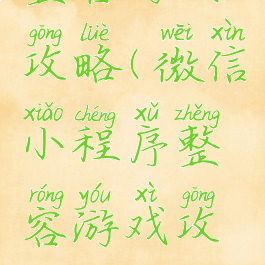 gōng lüè wēi xìn
攻略(微信
xiǎo chéng xǔ zhěng
小程序整
róng yóu xì gōng
容游戏攻